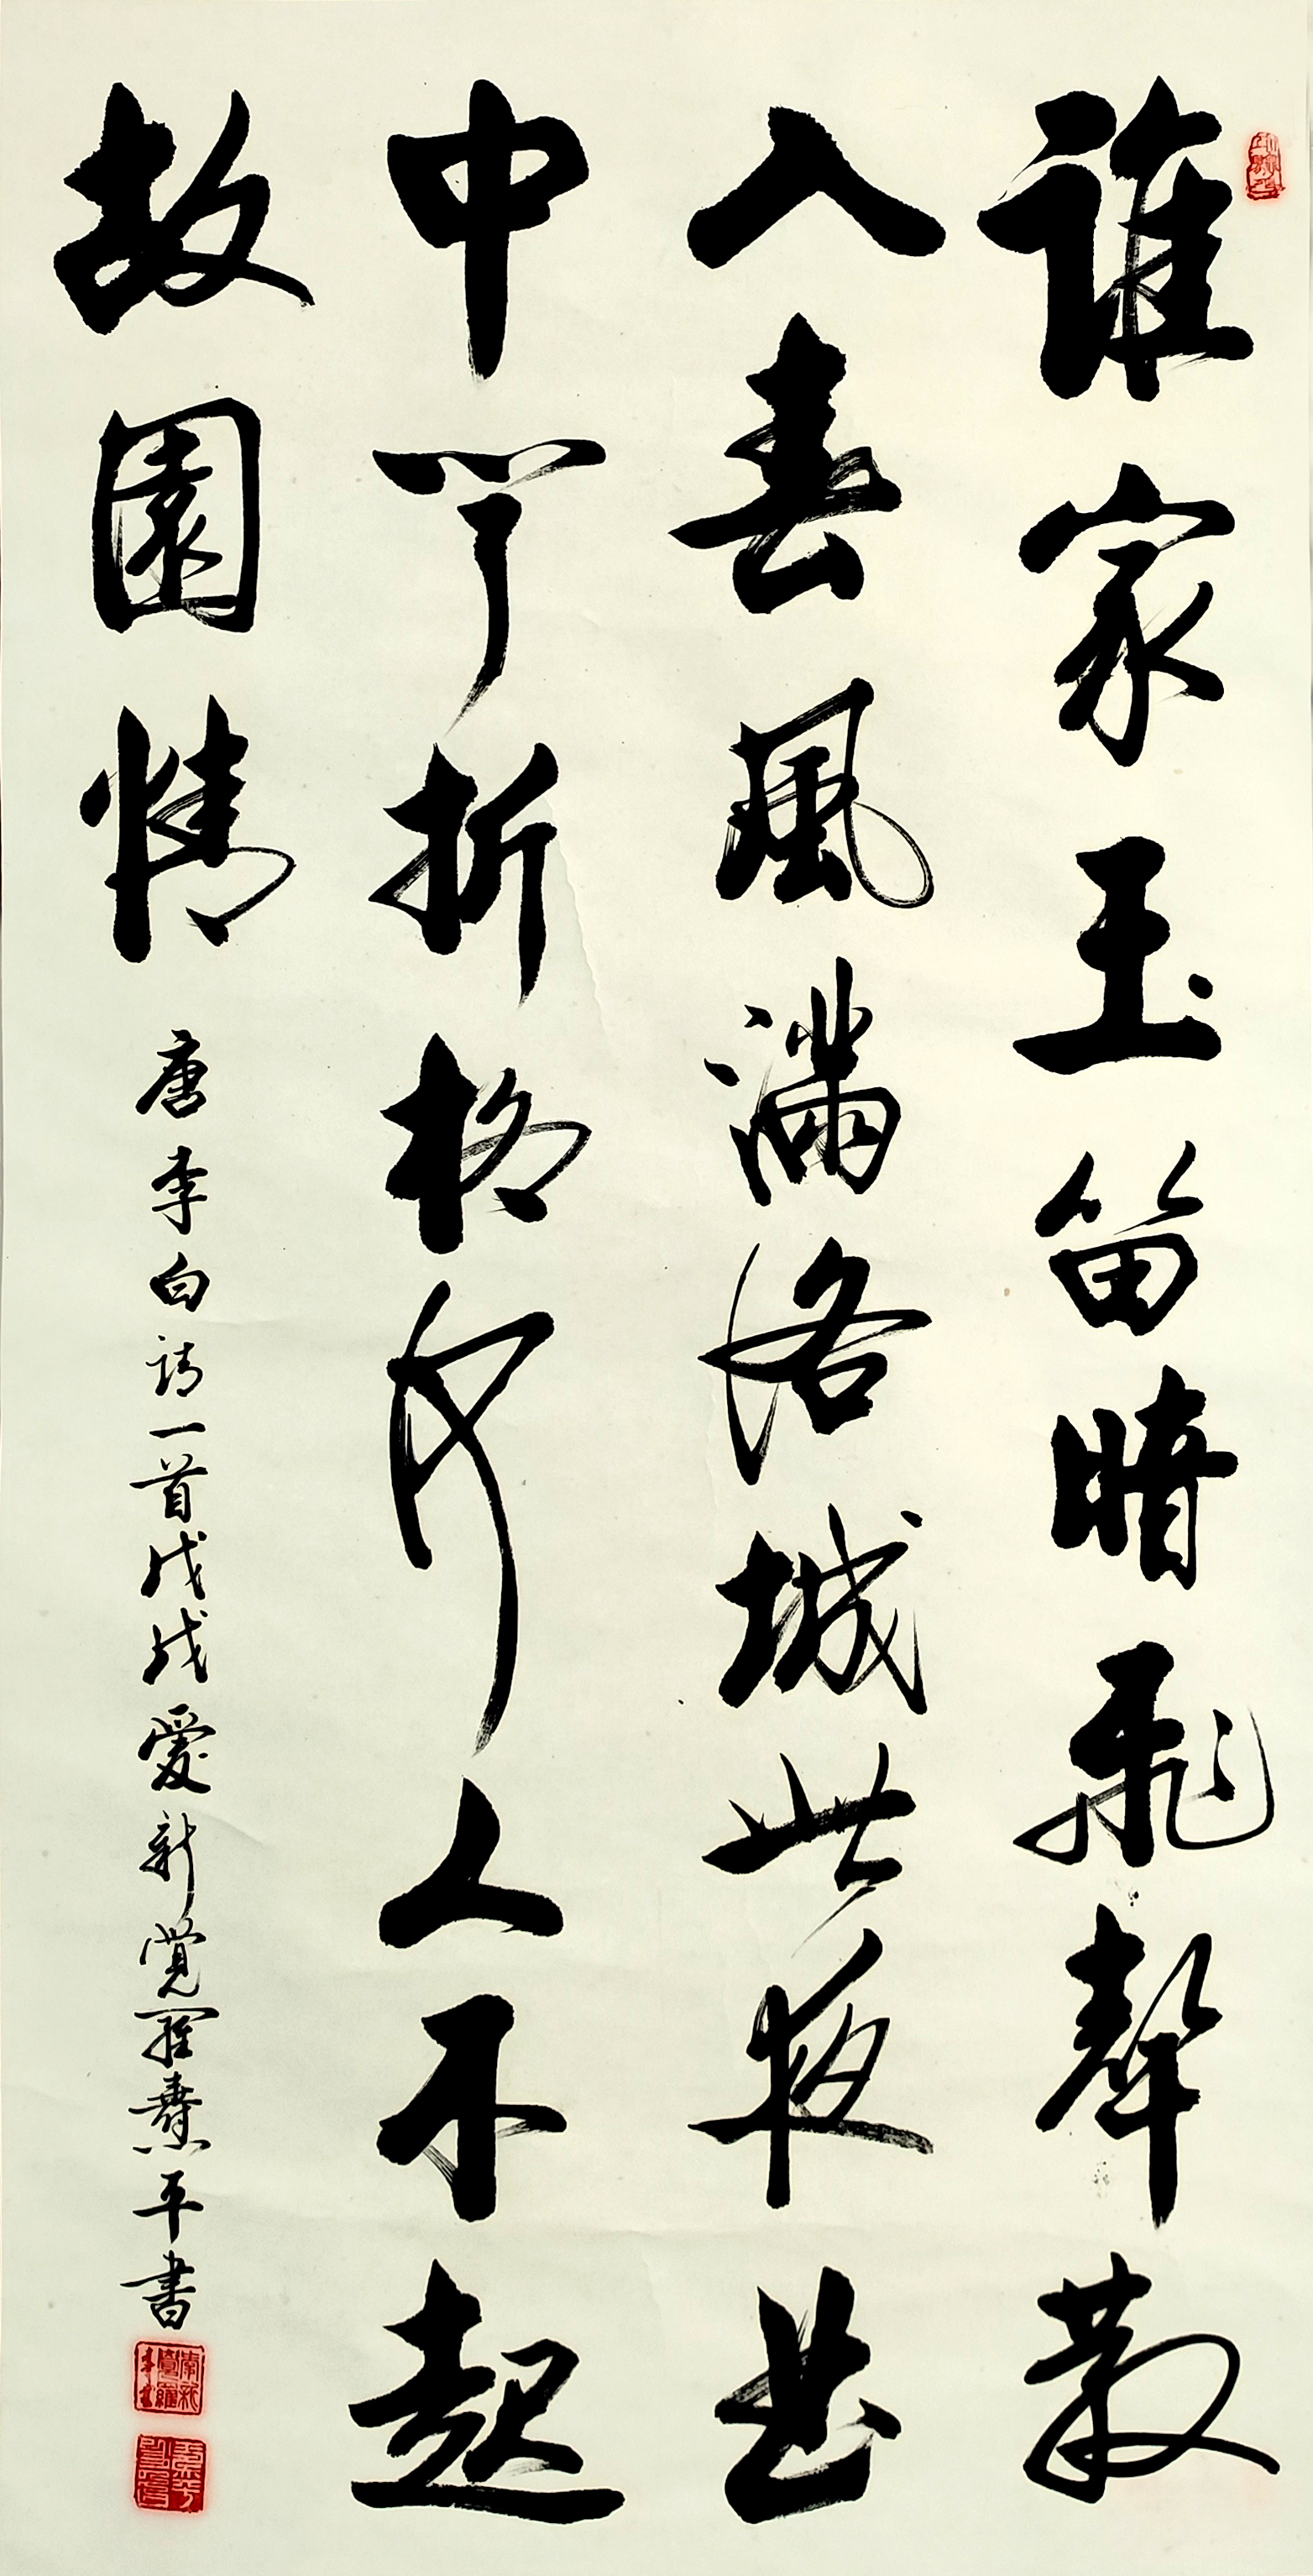 誰家玉笛暗飛聲散
入春風滿洛城此夜曲
中聞折柳何人不起
故園情
唐李白詩一首戊戌愛新覺羅燾平書